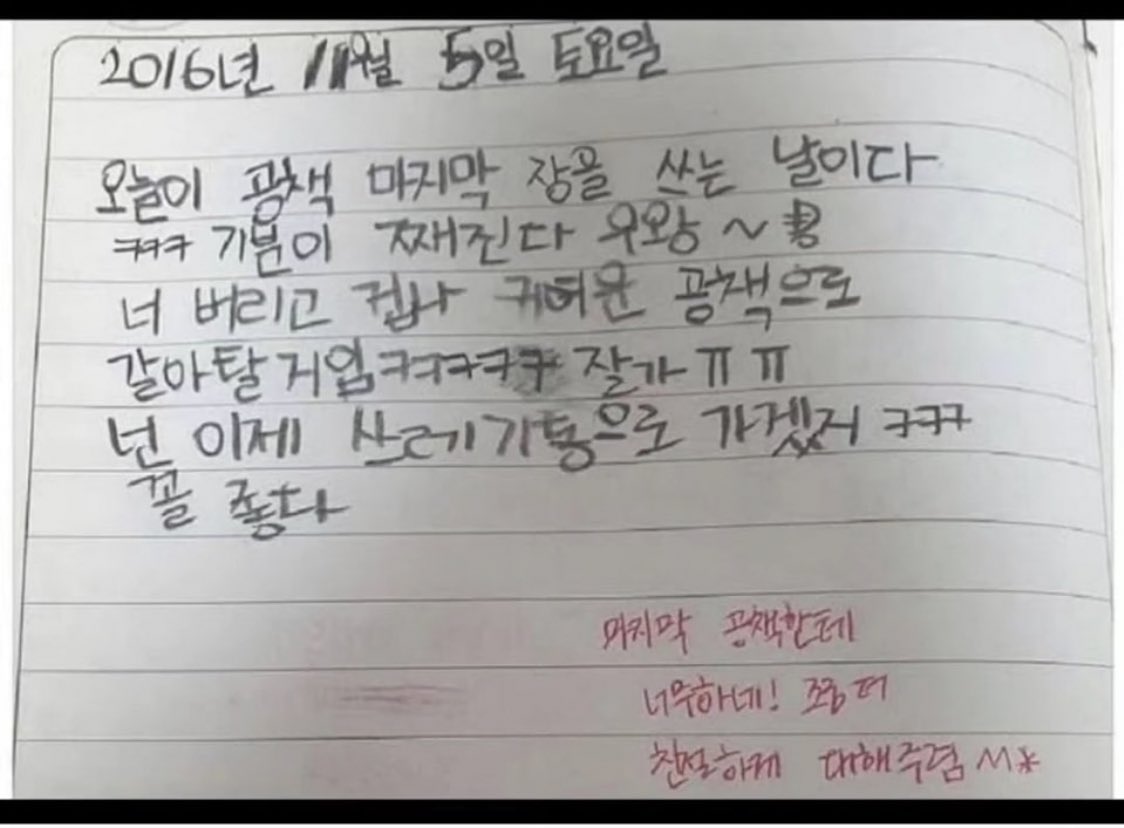 2016년 11월 5일 토요일
오늘이 공책 마지막 장을 쓰는 날이다
ㅋㅋㅋ 기분이 째진다 우왕~
너 버리고 겁나 귀여운 공책으로
갈아탈거임ㅋㅋㅋㅋㅋ 잘가ㅠㅠ
넌 이제 쓰레기통으로 가겠지 ㅋㅋㅋ
꼴 좋다
마지막 공책한테
너무하네! 좀 더
친절하게 대해주렴^^*